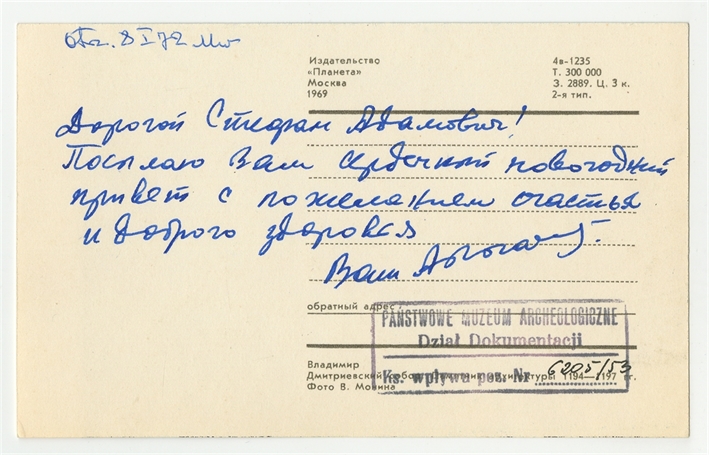 8 I 72
Издательство
«Планета»
Москва
1969
4в-1235
Т. 300 000
З. 2889. Ц. 3 к.
2-я тип.
Дорогой Стефан Адамович!
Посылаю Вам сердечный новогодний
привет с пожеланием счастья
и доброго здоровья
Ваш
обратный адрес
PAŃSTWOWE MUZEUM ARCHEOLOGICZNE
Dział Dokumentacji
Ks. wpływu poz. Nr 6205/53
Владимир
Дмитриевский собор. Памятник архитектуры 1194—1197 гг.
Фото В. Монина